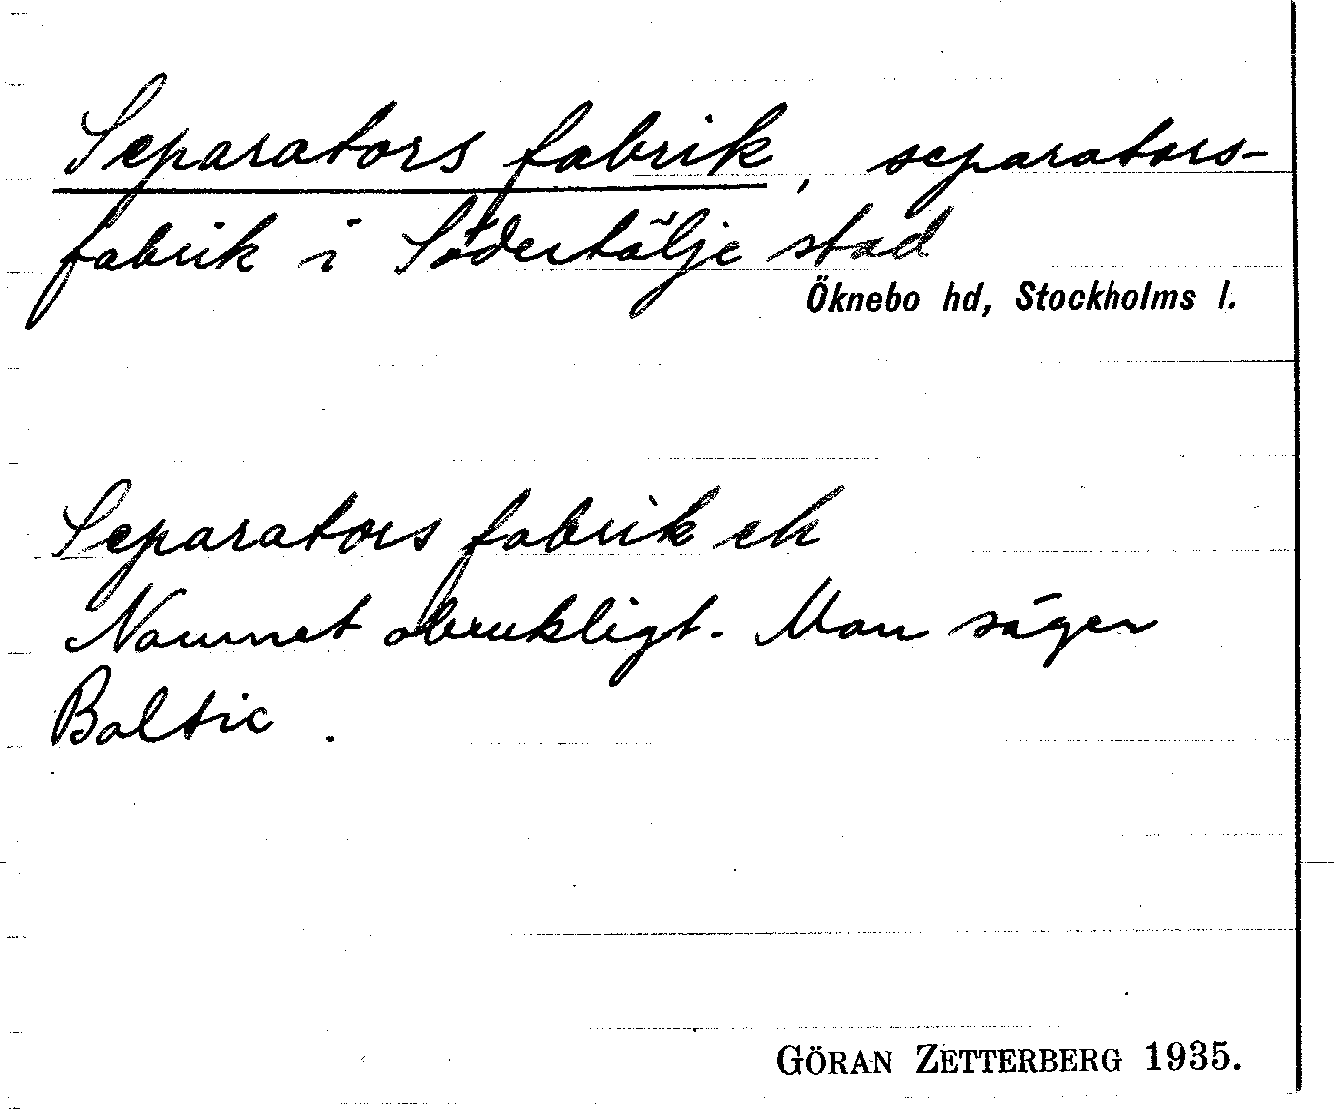 Separators fabrik, separators-
fabrik i Södertälje stad
Öknebo hd, Stockholms l.
Separators fabrik ek
Namnet obrukligt. Man säger
Baltic.
GÖRAN ZETTERBERG 1935.